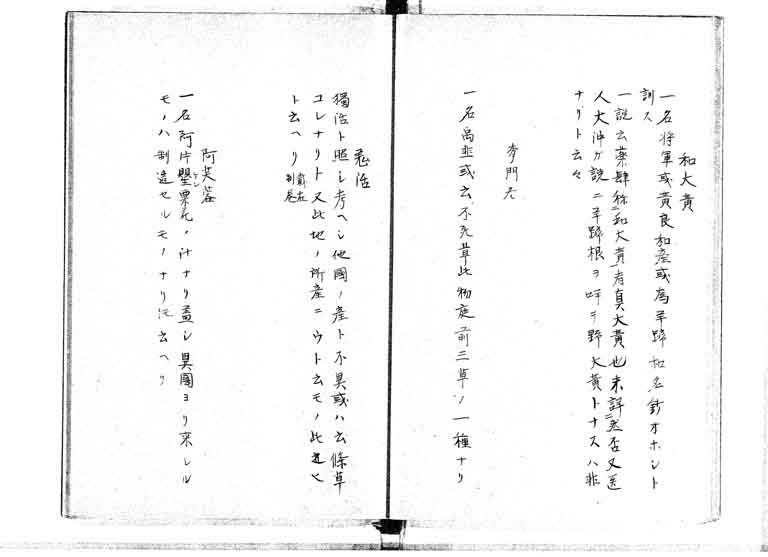 和大黄
一名将軍或黄良和産或為羊蹄和名
訓ス
一説云薬肆称ニ和大黄者真大黄也未詳ニ是否又医
人大沖ガ説ニ羊蹄根ヲ呼ヲ野大黄トナスハ非
ナリト云々
麦門冬
一名禹韭或云不死草此物庭前三草ノ一種ナリ
羌活
獨活ト照シ考ヘシ他國ノ産ト不異或ハ云條草
コレナリト又此地ノ所産ニウト云モノ此
ト云ヘリ
阿芙蓉
一名阿片罌粟花ノ汁ナリ蓋シ異國ヨリ来レル
モノハ制造セルモノナリト云ヘリ